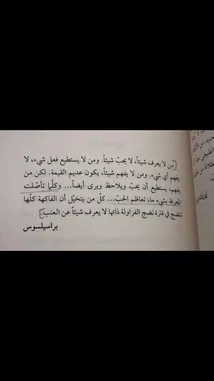 [من لا يعرف شيئاً، لا يحبّ شيئاً. ومن لا يستطيع فعل شيء، لا
يفهم أي شيء. ومن لا يفهم شيئاً، يكون عديم القيمة. لكن من
يفهم، يستطيع أن يحبّ ويلاحظ ويرى أيضاً... وكلّما تأصّلت
المعرفة بشيء ما، تعاظم الحبّ... كلّ من يتخيل أن الفاكهة كلّها
تنضج في فترة نضج الفراولة ذاتها لا يعرف شيئاً عن العنب]
براسيلسوس